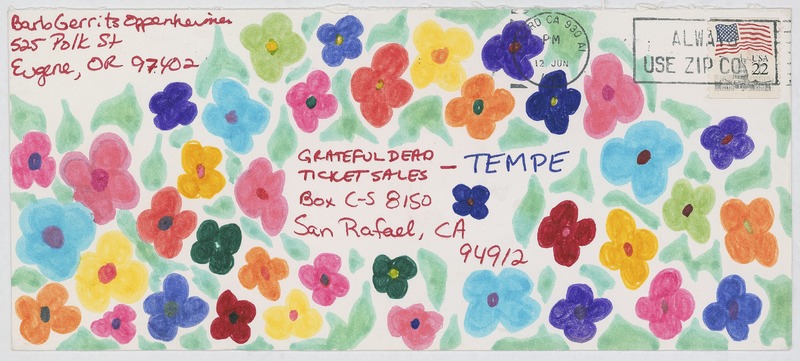 Barb Gerrits Oppenheimer
525 Polk St
Eugene, OR 97402
RD CA 930
PM
12 JUN
ALWA
USE ZIP CO
USA
22
GRATEFUL DEAD
TICKET SALES — TEMPE
Box C-S 8150
San Rafael, CA
94912